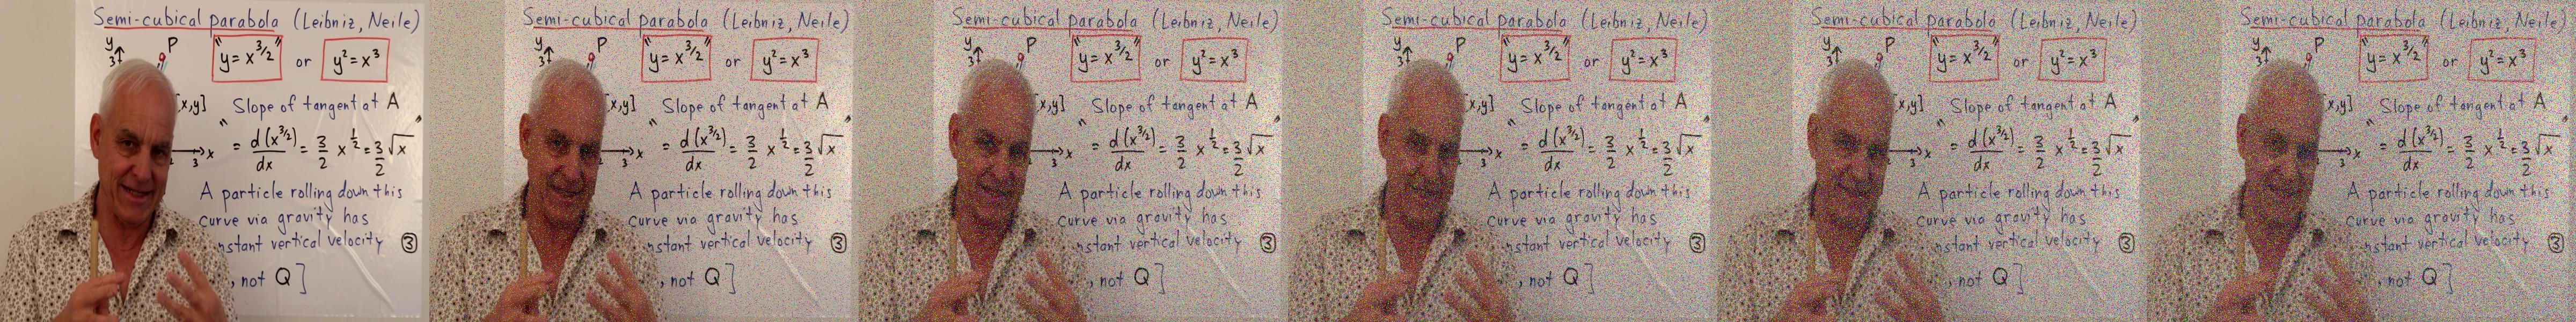 Semi-cubical parabola (Leibniz, Neile)
y P "y = x^3/2" or y² = x³
3
[x,y] Slope of tangent at A
" = d(x^3/2)/dx = 3/2 x^1/2 = 3/2 √x "
3 x
A particle rolling down this
curve via gravity has
nstant vertical velocity ③
, not Q]
Semi-cubical parabola (Leibniz, Neile)
y P "y = x^3/2" or y² = x³
3
[x,y] Slope of tangent at A
" = d(x^3/2)/dx = 3/2 x^1/2 = 3/2 √x "
3 x
A particle rolling down this
curve via gravity has
nstant vertical velocity ③
, not Q]
Semi-cubical parabola (Leibniz, Neile)
y P "y = x^3/2" or y² = x³
3
[x,y] Slope of tangent at A
" = d(x^3/2)/dx = 3/2 x^1/2 = 3/2 √x "
3 x
A particle rolling down this
curve via gravity has
nstant vertical velocity ③
, not Q]
Semi-cubical parabola (Leibniz, Neile)
y P "y = x^3/2" or y² = x³
3
[x,y] Slope of tangent at A
" = d(x^3/2)/dx = 3/2 x^1/2 = 3/2 √x "
3 x
A particle rolling down this
curve via gravity has
nstant vertical velocity ③
, not Q]
Semi-cubical parabola (Leibniz, Neile)
y P "y = x^3/2" or y² = x³
3
[x,y] Slope of tangent at A
" = d(x^3/2)/dx = 3/2 x^1/2 = 3/2 √x "
3 x
A particle rolling down this
curve via gravity has
nstant vertical velocity ③
, not Q]
Semi-cubical parabola (Leibniz, Neile)
y P "y = x^3/2" or y² = x³
3
[x,y] Slope of tangent at A
" = d(x^3/2)/dx = 3/2 x^1/2 = 3/2 √x "
3 x
A particle rolling down this
curve via gravity has
nstant vertical velocity ③
, not Q]